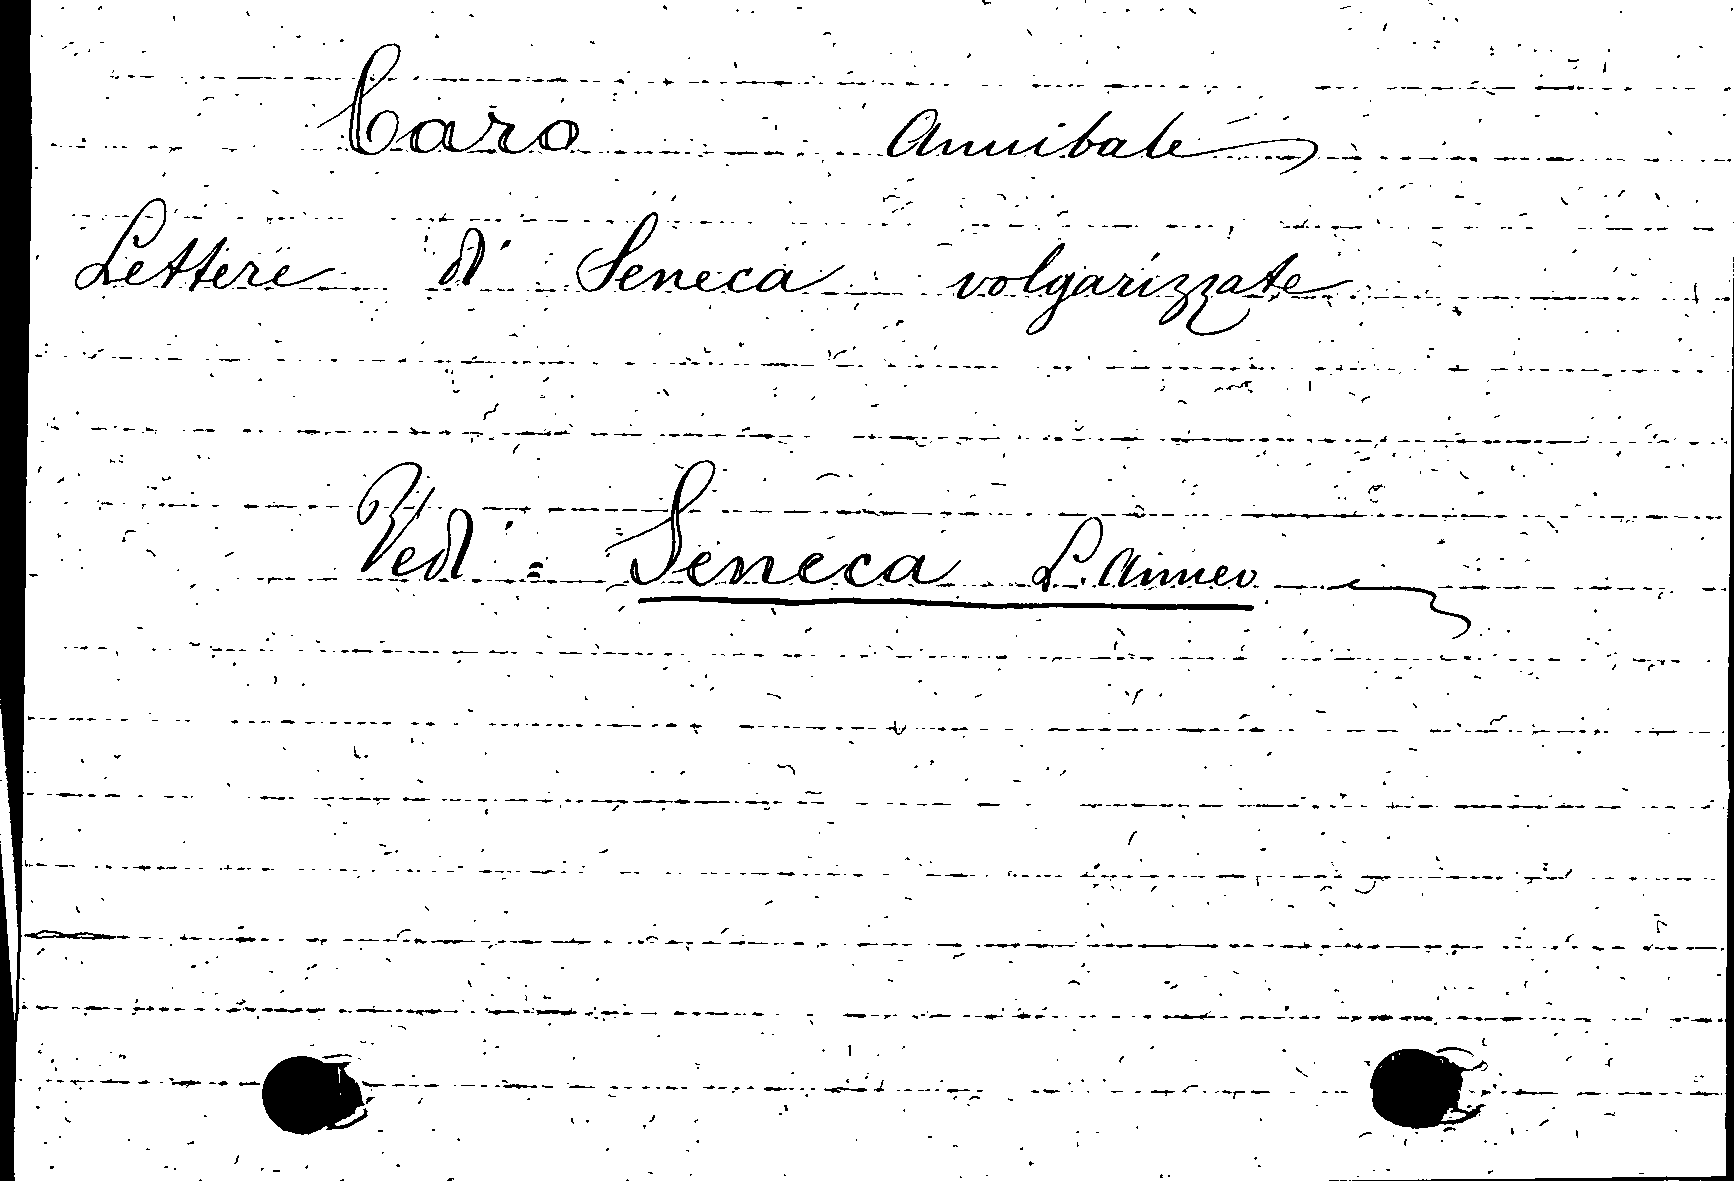 Caro Annibale
Lettere di Seneca volgarizzate
Vedi = Seneca L. Anneo